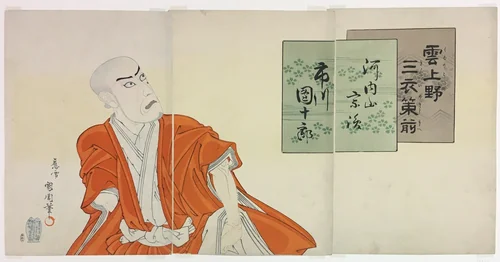 雲上野
三衣策前
河内山
宗俊
市川
團十郎
應需
國周筆